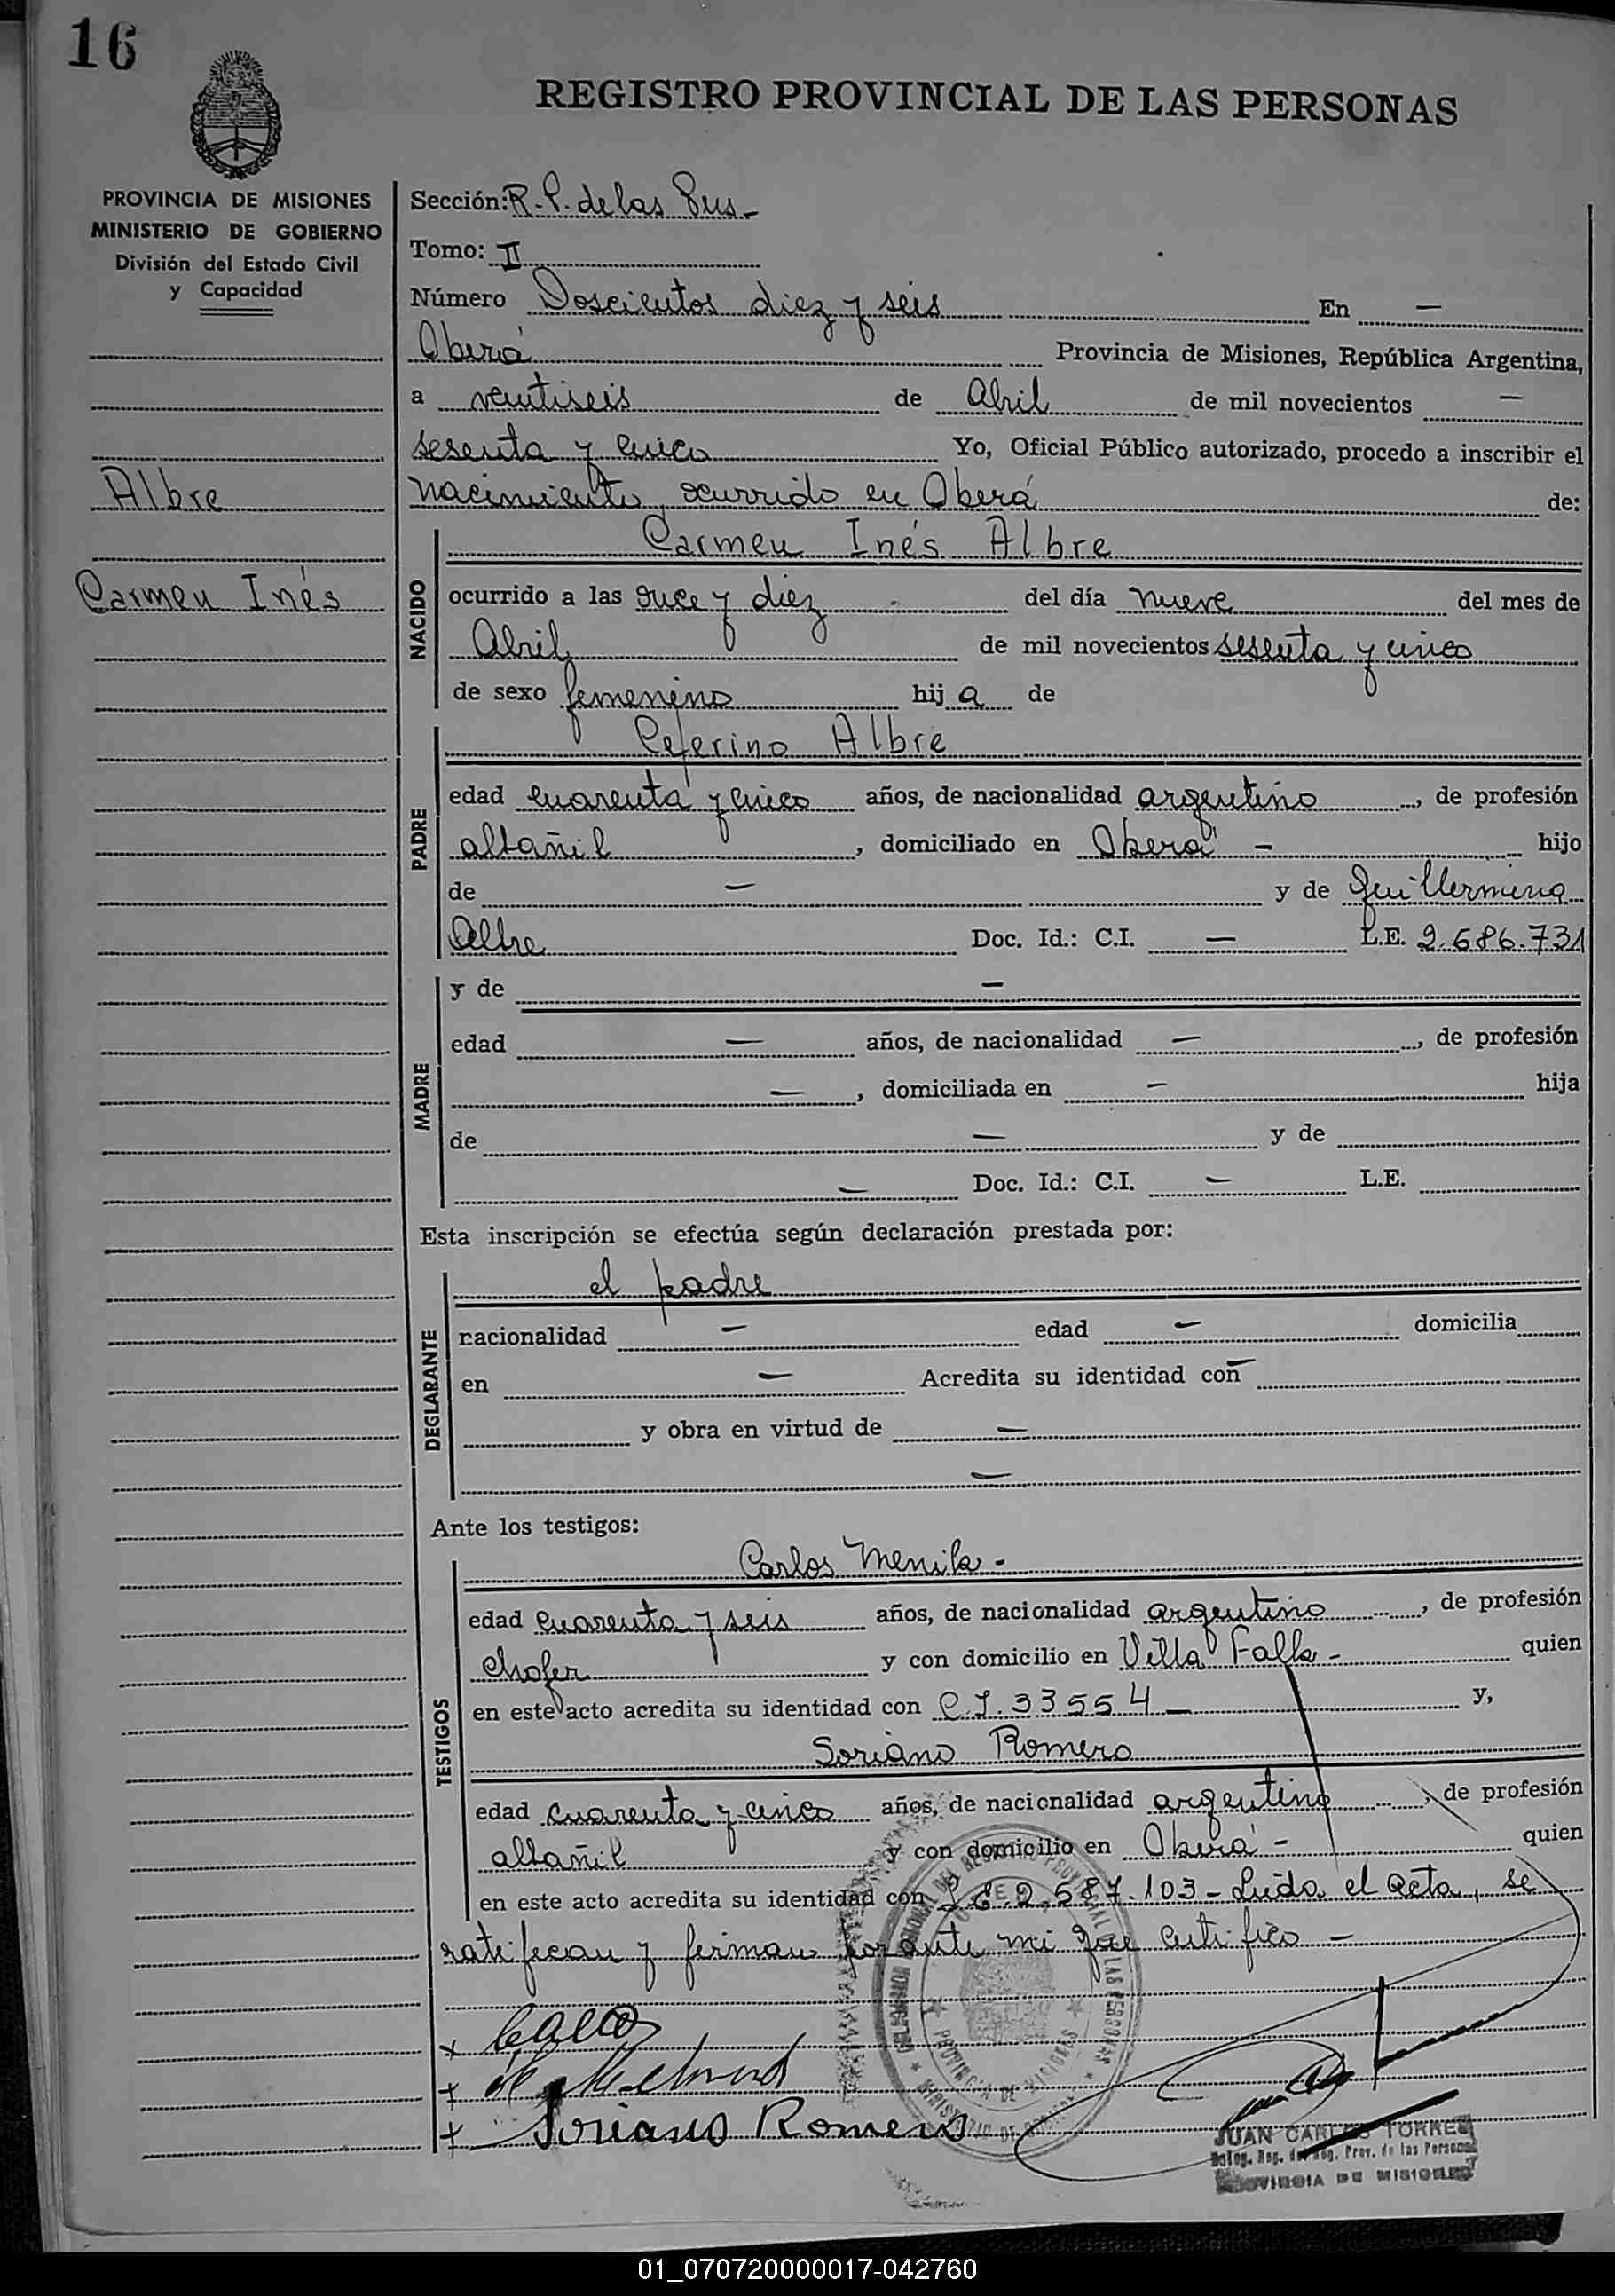 16
REGISTRO PROVINCIAL DE LAS PERSONAS
PROVINCIA DE MISIONES
MINISTERIO DE GOBIERNO
División del Estado Civil
y Capacidad
Albre
Carmen Inés
Sección: R.P. de las Pers -
Tomo: II
Número Doscientos diez y seis En —
Oberá Provincia de Misiones, República Argentina,
a ventiseis de Abril de mil novecientos —
sesenta y cinco Yo, Oficial Público autorizado, procedo a inscribir el
nacimiento ocurrido en Oberá de:
NACIDO
Carmen Inés Albre
ocurrido a las once y diez del día nueve del mes de
Abril de mil novecientos sesenta y cinco
de sexo femenino hij a de
PADRE
Ceferino Albre
edad cuarenta y cinco años, de nacionalidad argentino, de profesión
albañil, domiciliado en Oberá - hijo
de — y de Guillermina
Albre Doc. Id.: C.I. — L.E. 2.686.731
MADRE
y de —
edad — años, de nacionalidad —, de profesión
—, domiciliada en — hija
de — y de
— Doc. Id.: C.I. — L.E.
Esta inscripción se efectúa según declaración prestada por:
DECLARANTE
el padre
nacionalidad — edad — domicilia
en — Acredita su identidad con —
y obra en virtud de —
—
Ante los testigos:
TESTIGOS
Carlos -
edad cuarenta y seis años, de nacionalidad argentino, de profesión
chofer y con domicilio en Villa Falk - quien
en este acto acredita su identidad con C.I. 33554 — y,
Soriano Romero
edad cuarenta y cinco años, de nacionalidad argentino, de profesión
albañil y con domicilio en Oberá - quien
en este acto acredita su identidad con L.E. 2.687.103 - Leida el acta, se
ratifican y firman por ante mi que certifico —
Soriano Romero
JUAN CARLOS TORRES
Deleg. Reg. del Reg. Prov. de las Personas
PROVINCIA DE MISIONES
01_070720000017-042760